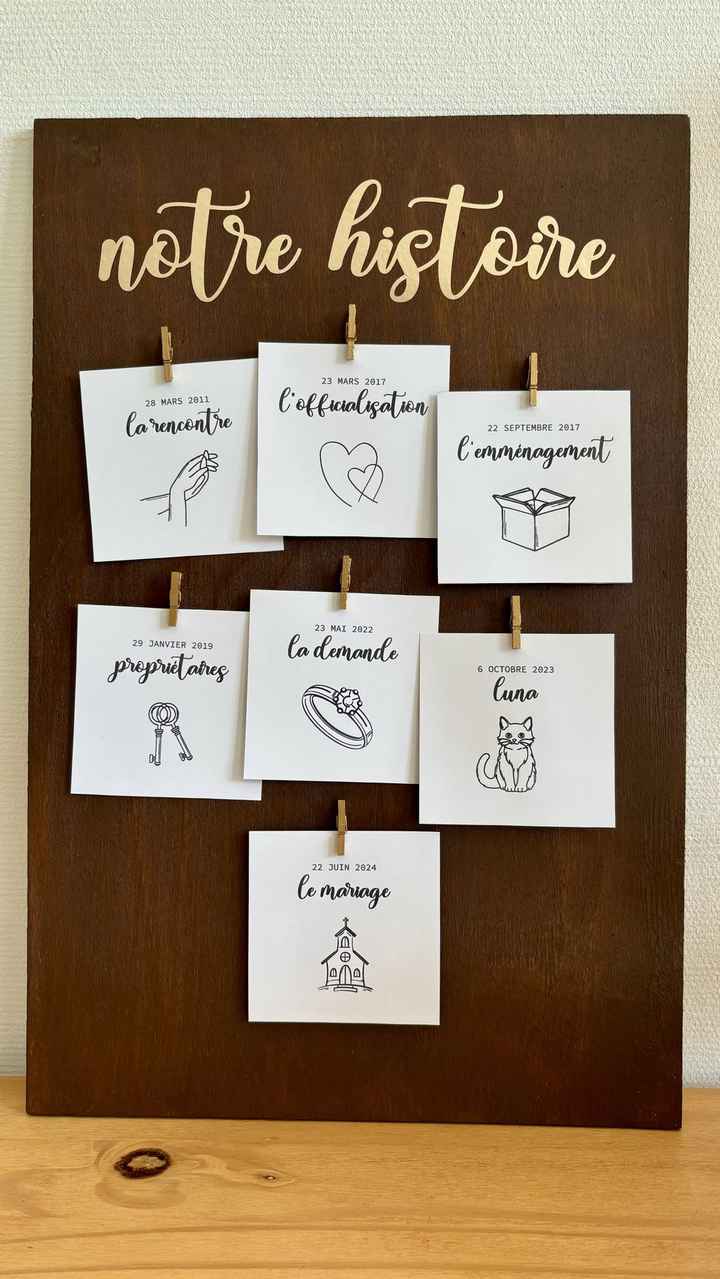 notre histoire
28 MARS 2011
la rencontre
23 MARS 2017
l'officialisation
22 SEPTEMBRE 2017
l'emménagement
29 JANVIER 2019
propriétaires
23 MAI 2022
la demande
6 OCTOBRE 2023
luna
22 JUIN 2024
le mariage